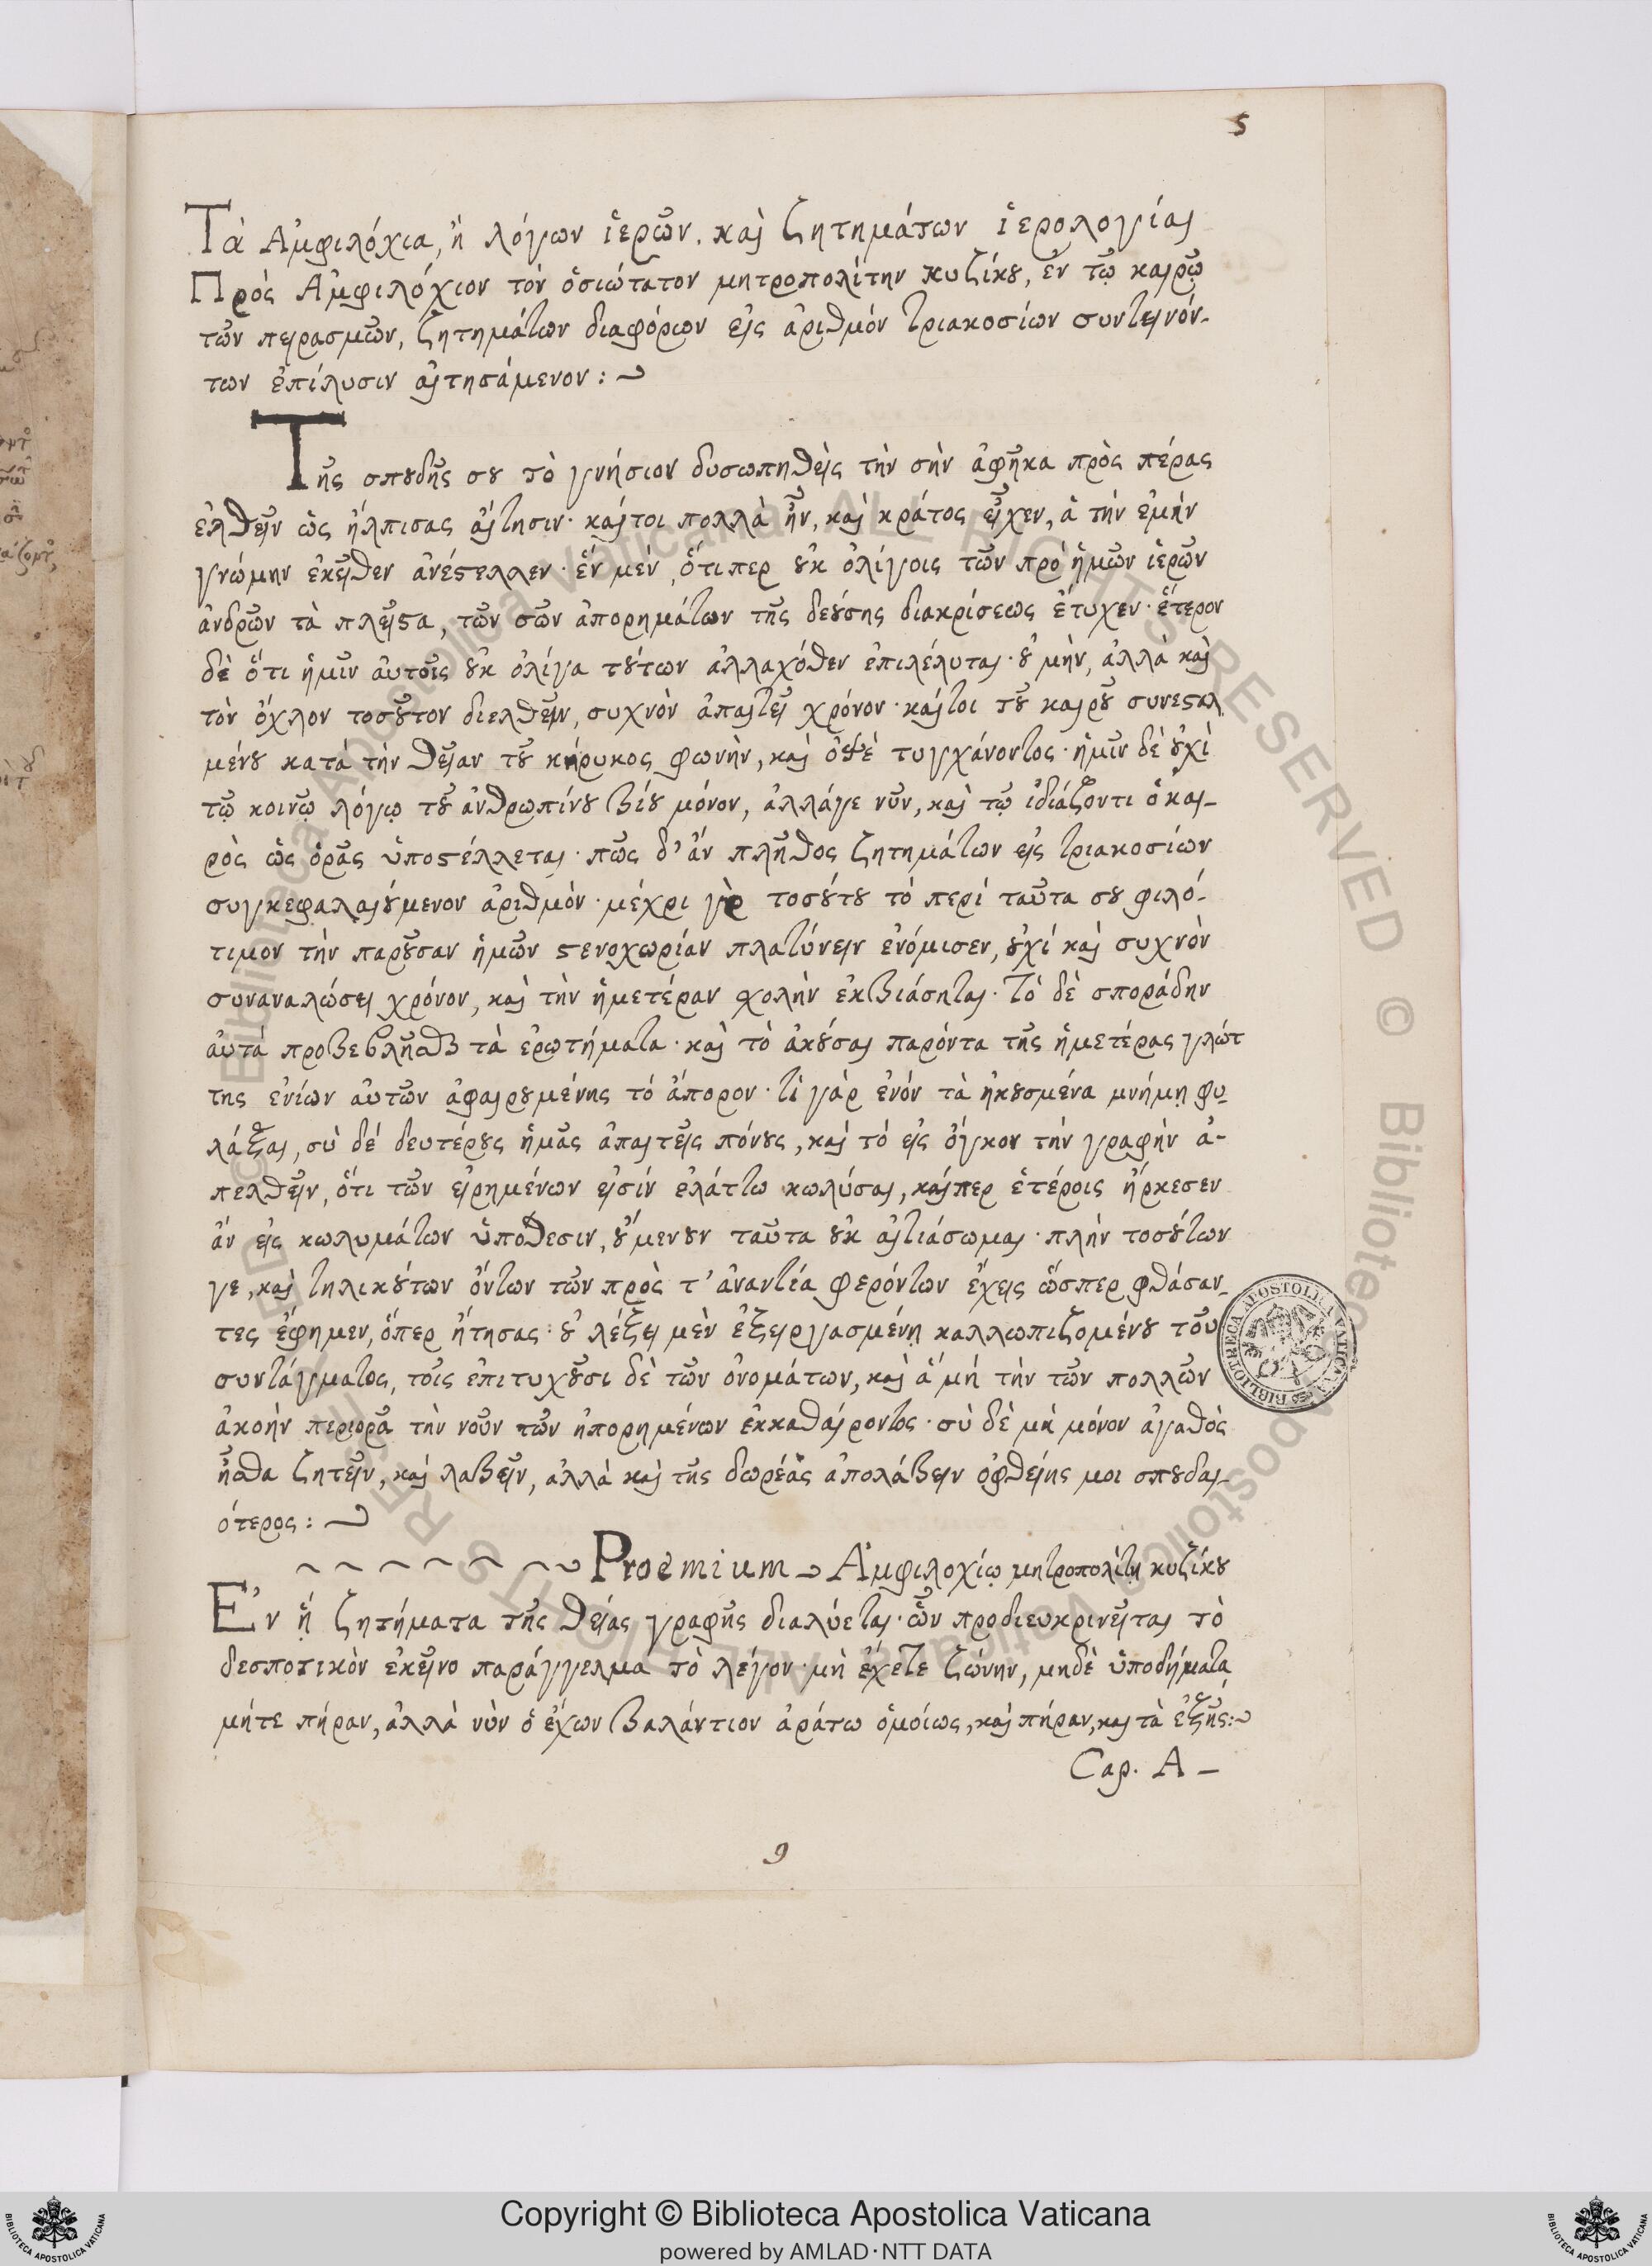 5
Τὰ Ἀμφιλόχια, ἢ λόγων ἱερῶν. καὶ ζητημάτων ἱερολογίαι
Πρὸς Ἀμφιλόχιον τὸν ὁσιώτατον μητροπολίτην κυζίκου, ἐν τῷ καιρῷ
τῶν πειρασμῶν, ζητημάτων διαφόρων εἰς ἀριθμόν τριακοσίων συντεινόν-
των ἐπίλυσιν αἰτησάμενον :
Τῆς σπουδῆς σου τὸ γνήσιον δυσωπηθεὶς τὴν σὴν ἀφῆκα πρὸς πέρας
ἐλθεῖν ὡς ἤλπισας αἴτησιν · καίτοι πολλὰ ἦν, καὶ κράτος εἶχεν, ἃ τὴν ἐμήν
γνώμην ἐκεῖθεν ἀνέστελλεν · ἓν μὲν, ὅτιπερ οὐκ ὀλίγοις τῶν πρὸ ἡμῶν ἱερῶν
ἀνδρῶν τὰ πλεῖστα, τῶν σῶν ἀπορημάτων τῆς δεούσης διακρίσεως ἔτυχεν · ἕτερον
δὲ ὅτι ἡμῖν αὐτοῖς οὐκ ὀλίγα τούτων ἀλλαχόθεν ἐπιλέλυται · οὐ μὴν, ἀλλὰ καὶ
τὸν ὄχλον τοσοῦτον διελθεῖν, συχνὸν ἀπαιτεῖ χρόνον · καίτοι τοῦ καιροῦ συνεσταλ
μένου κατὰ τὴν θεῖαν τοῦ κήρυκος φωνὴν, καὶ ὀψὲ τυγχάνοντος · ἡμῖν δὲ οὐχὶ
τῷ κοινῷ λόγῳ τοῦ ἀνθρωπίνου βίου μόνον, ἀλλάγε νῦν, καὶ τῷ ἰδιάζοντι ὁ και-
ρὸς ὡς ὁρᾷς ὑποστέλλεται · πῶς δ' ἂν πλῆθος ζητημάτων εἰς τριακοσίων
συγκεφαλαιούμενον ἀριθμὸν · μέχρι γὰρ τοσούτου τὸ περὶ ταῦτα σου φιλό-
τιμον τὴν παροῦσαν ἡμῶν στενοχωρίαν πλατύνειν ἐνόμισεν, οὐχί καὶ συχνὸν
συναναλώσει χρόνον, καὶ τὴν ἡμετέραν σχολὴν ἐκβιάσηται · τὸ δὲ σποράδην
αὐτά προβεβλῆσθαι τὰ ἐρωτήματα · καὶ τὸ ἀκούσαι παρόντα τῆς ἡμετέρας γλώτ
της ἐνίων αὐτῶν ἀφαιρουμένης τὸ ἄπορον · τί γὰρ ἐνόν τὰ ἠκουσμένα μνήμῃ φυ-
λάξαι, σὺ δέ δευτέρους ἡμᾶς ἀπαιτεῖς πόνους, καὶ τὸ εἰς ὄγκον τὴν γραφὴν ἀ-
πελθεῖν, ὅτι τῶν εἰρημένων εἰσίν ἐλάττω κωλύσαι, καίπερ ἑτέροις ἤρκεσεν
ἄν εἰς κωλυμάτων ὑπόθεσιν, οὔμενουν ταῦτα οὐκ αἰτιάσωμαι · πλήν τοσούτων
γε, καὶ τηλικούτων ὄντων τῶν πρὸς τ' ἀναντία φερόντων ἔχεις ὥσπερ φθάσαν-
τες ἔφημεν, ὅπερ ᾔτησας · οὐ λέξει μὲν ἐξειργασμένῃ καλλωπιζομένου τοῦ
συντάγματος, τοῖς ἐπιτυχοῦσι δὲ τῶν ὀνομάτων, καὶ ἃ μὴ τὴν τῶν πολλῶν
ἀκοὴν περιορᾷ τὴν νοῦν τῶν ἠπορημένων ἐκκαθαίροντος · σὺ δὲ μὴ μόνον ἀγαθὸς
ἦσθα ζητεῖν, καὶ λαβεῖν, ἀλλὰ καὶ τῆς δωρεᾶς ἀπολάβειν ὀφθείης μοι σπουδαι-
ότερος :
Proemium Ἀμφιλοχίῳ μητροπολίτῃ κυζίκου
Ἐν ᾗ ζητήματα τῆς θείας γραφῆς διαλύεται · ὧν προδιευκρινεῖται τὸ
δεσποτικὸν ἐκεῖνο παράγγελμα τὸ λέγον · μὴ ἔχετε ζώνην, μηδὲ ὑποδήματα
μήτε πήραν, ἀλλὰ νῦν ὁ ἔχων βαλάντιον ἀράτω ὁμοίως, καὶ πήραν, και τὰ ἑξῆς :
Cap. A -
9
BIBLIOTHECA APOSTOLICA VATICANA
© Biblioteca Apostolica Vaticana ALL RIGHTS RESERVED
Copyright © Biblioteca Apostolica Vaticana
powered by AMLAD·NTT DATA
BIBLIOTECA APOSTOLICA VATICANA
BIBLIOTECA APOSTOLICA VATICANA